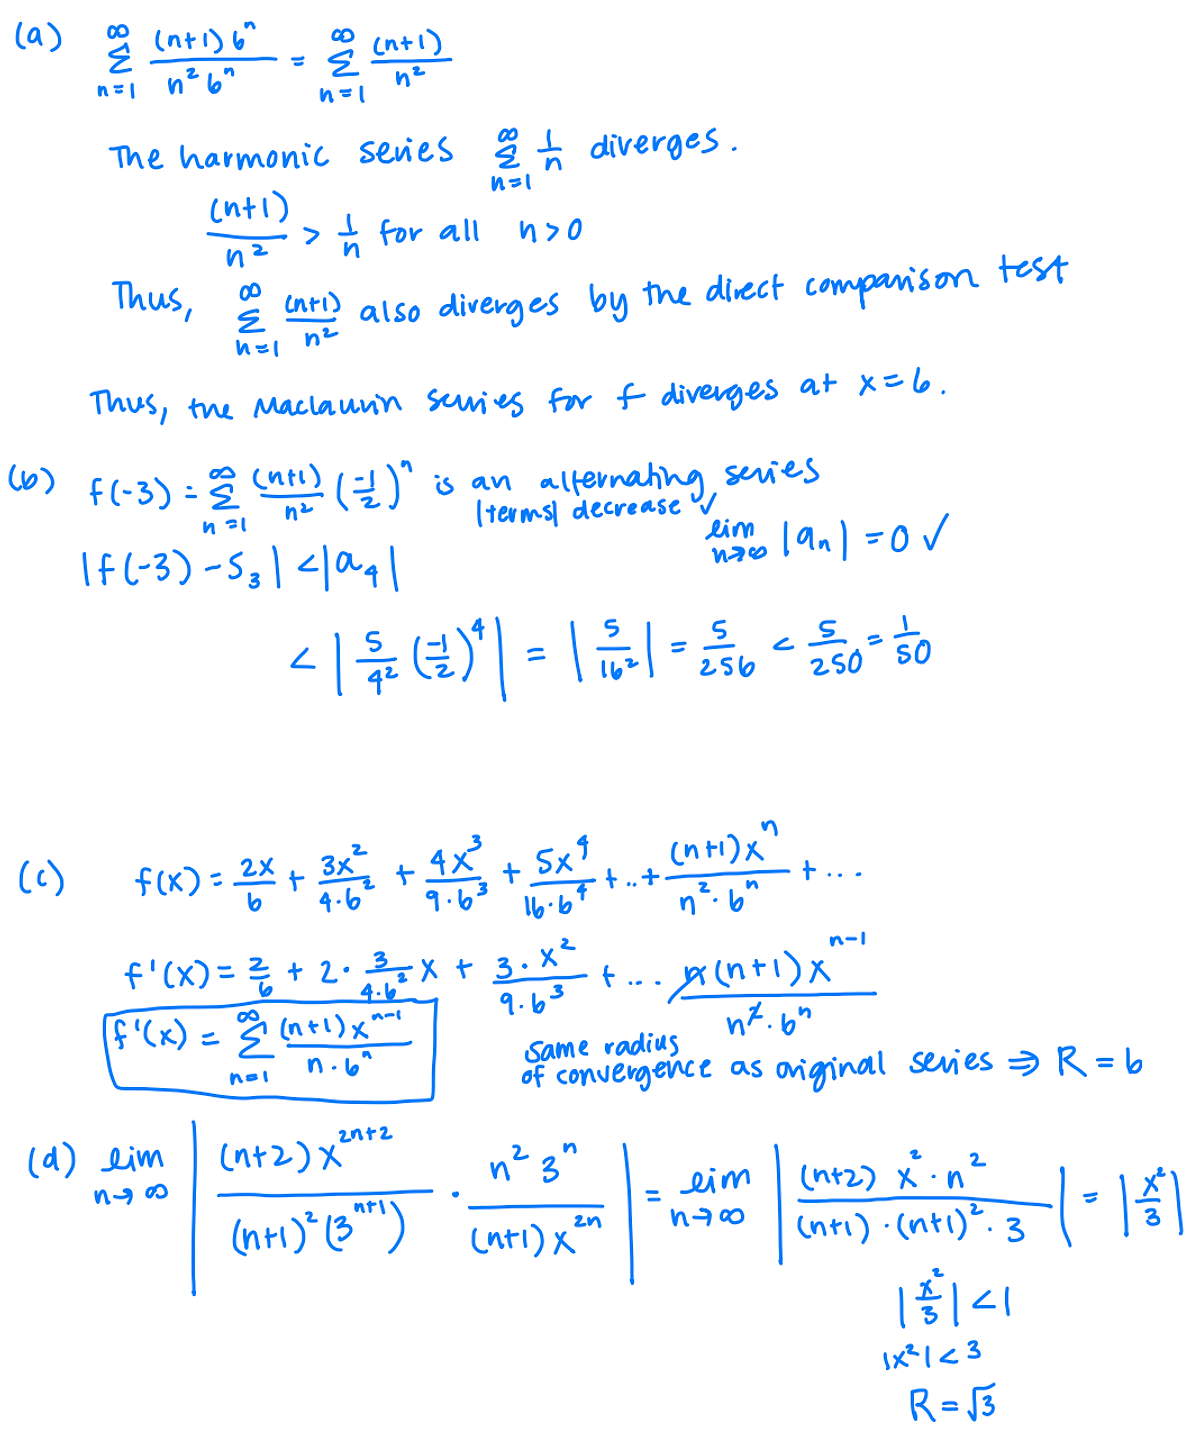 (a) ∞ Σ n=1 (n+1)6^n / n^2 6^n = ∞ Σ n=1 (n+1) / n^2
The harmonic series ∞ Σ n=1 1/n diverges.
(n+1) / n^2 > 1/n for all n>0
Thus, ∞ Σ n=1 (n+1) / n^2 also diverges by the direct comparison test
Thus, the Maclaurin series for f diverges at x=6.
(b) f(-3) = ∞ Σ n=1 (n+1) / n^2 (-1/2)^n is an alternating series
|terms| decrease ✓ lim n→∞ |a_n| = 0 ✓
|f(-3) - S_3| < |a_4|
< |5/4^2 (-1/2)^4| = |5/16^2| = 5/256 < 5/250 = 1/50
(c) f(x) = 2x/6 + 3x^2/4·6^2 + 4x^3/9·6^3 + 5x^4/16·6^4 + ..+ (n+1)x^n / n^2·6^n + ...
f'(x) = 2/6 + 2· 3/4·6^2 x + 3·x^2/9·6^3 + ... n(n+1)x^{n-1} / n^2·6^n
f'(x) = ∞ Σ n=1 (n+1)x^{n-1} / n·6^n
same radius
of convergence as original series ⇒ R = 6
(d) lim n→∞ | (n+2)x^{2n+2} / (n+1)^2(3^{n+1}) · n^2 3^n / (n+1)x^{2n} | = lim n→∞ | (n+2) x^2·n^2 / (n+1)·(n+1)^2·3 | = |x^2/3|
|x^2/3| < 1
|x^2| < 3
R = √3